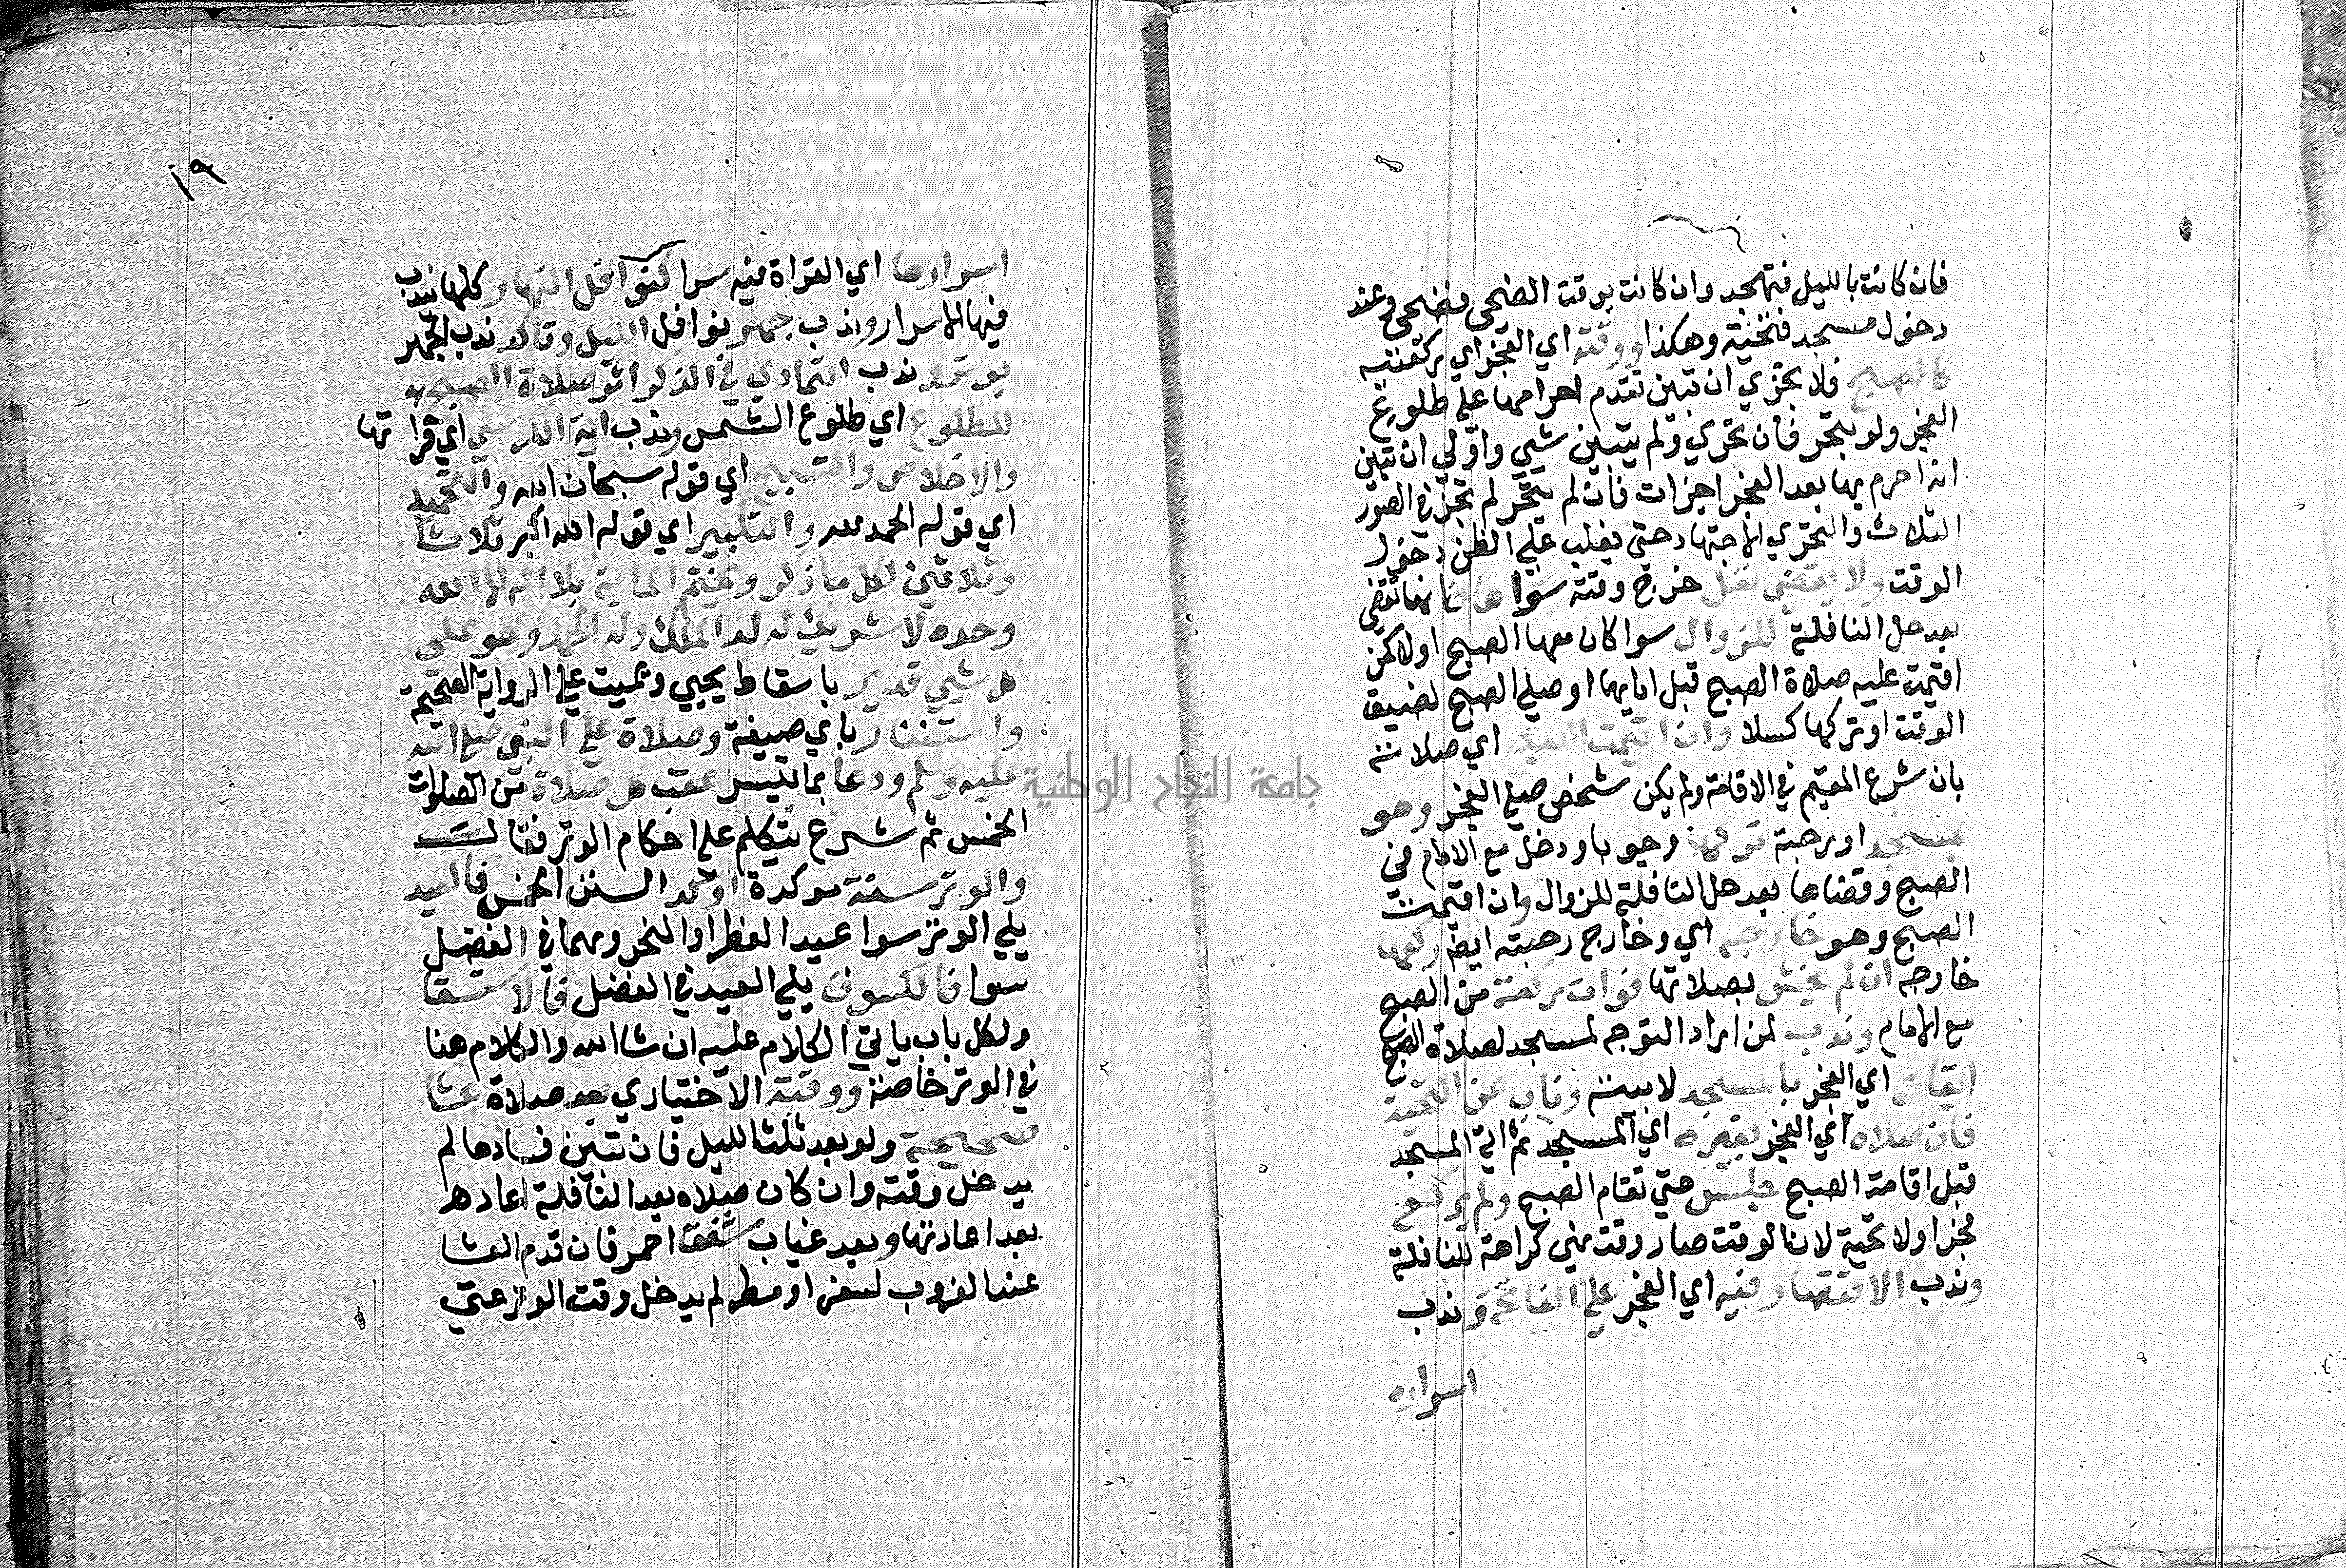 فان كانت بالليل فتهجد وان كانت بوقت الضحى فضحى وعند
دخول مسجد فتحية وهكذا ووقته اي الفجر اي ركعتيه
كالصبح فلا تجزي ان تبين تقدم احرامها علي طلوع
الفجر ولو بتحر فان تحري ولم يتبين شي واولي ان تبين
انه احرم بها بعد الفجر اجزات فان لم يتحر لم تجز في الصور
الثلاث والتحري الاجتهاد حتي يغلب علي الظن دخول
الوقت ولا يقضي نفل خرج وقته سواها فانها تقضي
بعد حل النافلة للزوال سوا كان معها الصبح اولا كمن
اقيمت عليه صلاة الصبح قبل اداىها او صلي الصبح لضيق
الوقت او تركها كسلا وان اقيمت الصبح اي صلاته
بان شرع المقيم في الاقامة ولم يكن شخص صلي الفجر وهو
بمسجد او رحبة تركها وجوبا ودخل مع الامام في
الصبح وقضاها بعد حل النافلة للزوال وان اقيمت
الصبح وهو خارجه اي وخارج رحبته ايضا ركعها
خارجه ان لم يخش بصلاتها فوات ركعة من الصبح
مع الامام وندب لمن اراد التوجه لمسجد لصلاة الصبح
ايقاعه اي الفجر بالمسجد لا ببيته وناب عن التحية
فان صلاه اي الفجر بغيره اي المسجد ثم اتي المسجد
قبل اقامة الصبح جلس حتي تقام الصبح ولم يركع
فجرا ولا تحية لان الوقت صار وقت نهي كراهة للنافلة
وندب الاقتصار فيه اي الفجر علي الفاتحة وندب
اسراره
١٩
اسرارها اي القراة فيه سرا كنوافل النهار كلها يندب
فيها الاسرار وندب جهر نوافل الليل وتاكد ندب الجهر
بوتر وندب التمادي في الذكر اثر صلاة الصبح
للطلوع اي طلوع الشمس وندب اية الكرسي اي قراتها
والاخلاص والتسبيح اي قوله سبحان الله والتحميد
اي قوله الحمد لله والتكبير اي قوله الله اكبر ثلاثا
وثلاثين لكل ما ذكر وتختم الماية بلا اله الا الله
وحده لا شريك له له الملك وله الحمد وهو علي
كل شي قدير باسقاط يحيي ويميت علي الرواية الصحيحة
واستغفار باي صيغة وصلاة علي النبي صلي الله
عليه وسلم ودعا بما تيسر عقب كل صلاة من الصلوات
الخمس ثم شرع يتكلم علي احكام الوتر فقال
والوتر سنة موكدة اوكد السنن الخمس فالعيد
يلي الوتر سوا عيد الفطر او النحر وهما في الفضل
سوا فالكسوف يلي العيد في الفضل فالاستسقا
ولكل باب ياتي الكلام عليه ان شا الله والكلام هنا
في الوتر خاصة ووقته الاختياري بعد صلاة عشا
صحيحة ولو بعد ثلث الليل فان تبين فسادها لم
يدخل وقته وان كان صلاه بعد النافلة اعاده
بعد اعادتها وبعد غياب شفق احمر فان قدم العشا
عند الغروب لسفر او مطر لم يدخل وقت الوتر حتي
جامعة النجاح الوطنية